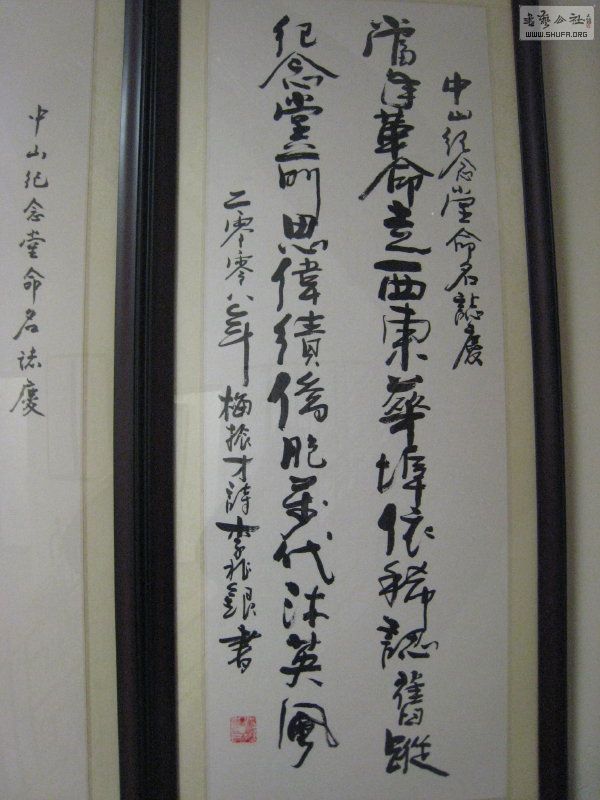 書藝公社
WWW.SHUFA.ORG
中山紀念堂命名誌慶
當年革命走西東華埠依稀認舊蹤
紀念堂前思偉績僑胞萬代沐英風
二零零八年 梅振才詩 李銀書
中山紀念堂命名誌慶